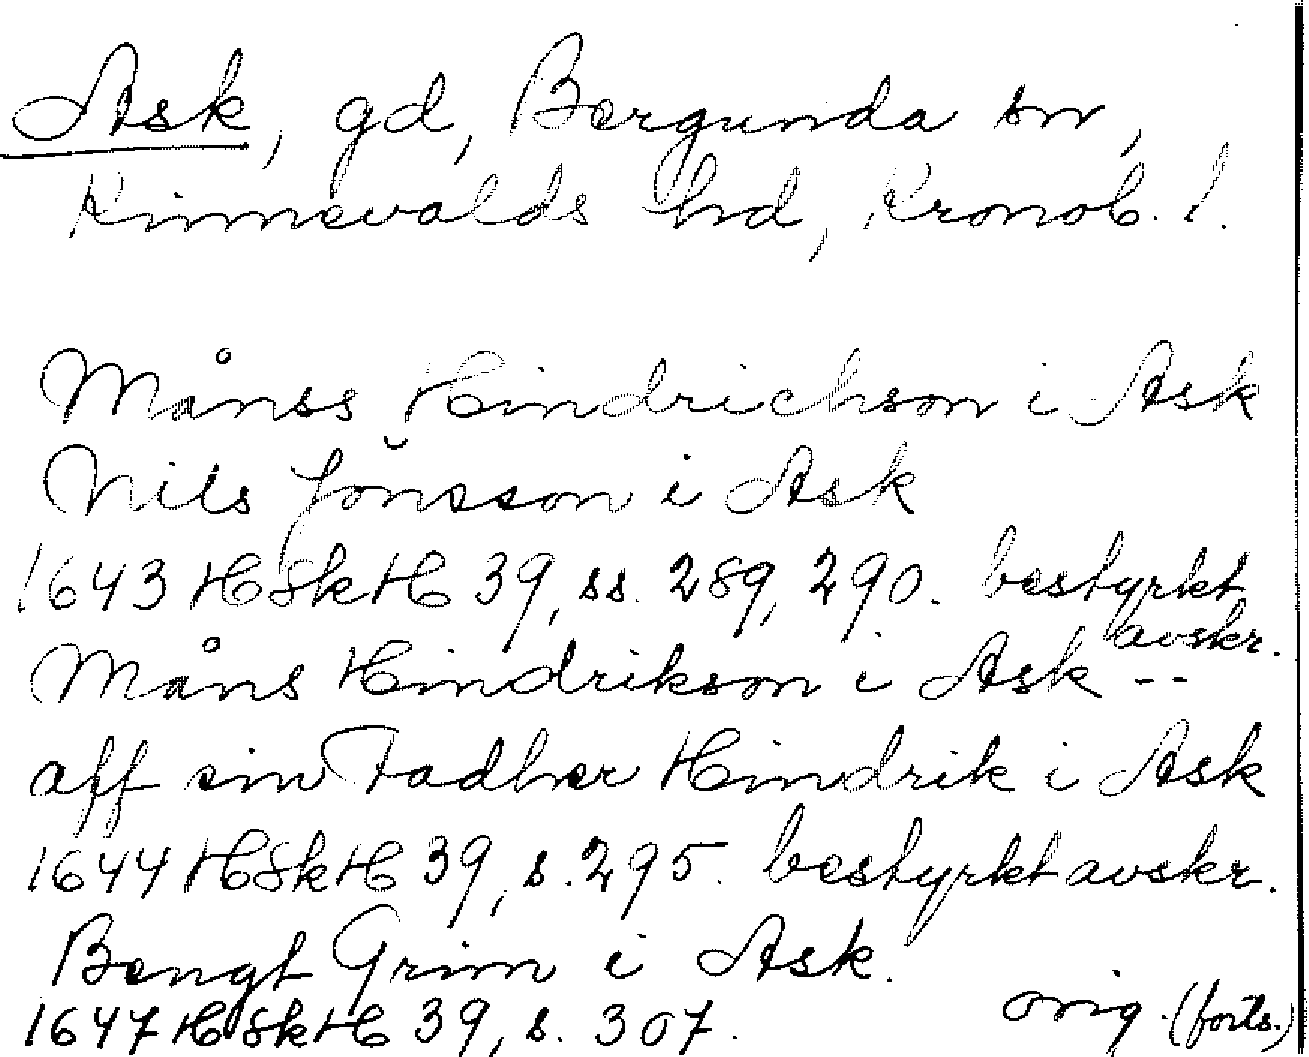 Ask, gd, Bergunda sn,
Kinnevalds hd, Kronob. l.
Månss Hindrichson i Ask
Nils Jönsson i Ask
1643 HSkH 39, ss. 289, 290. bestyrkt
avskr.
Måns Hindrikson i Ask --
aff sin Fadher Hindrik i Ask
1644 HSkH 39, s. 295. bestyrkt avskr.
Bengt Grim i Ask.
1647 HSkH 39, s. 307. orig. (forts.)